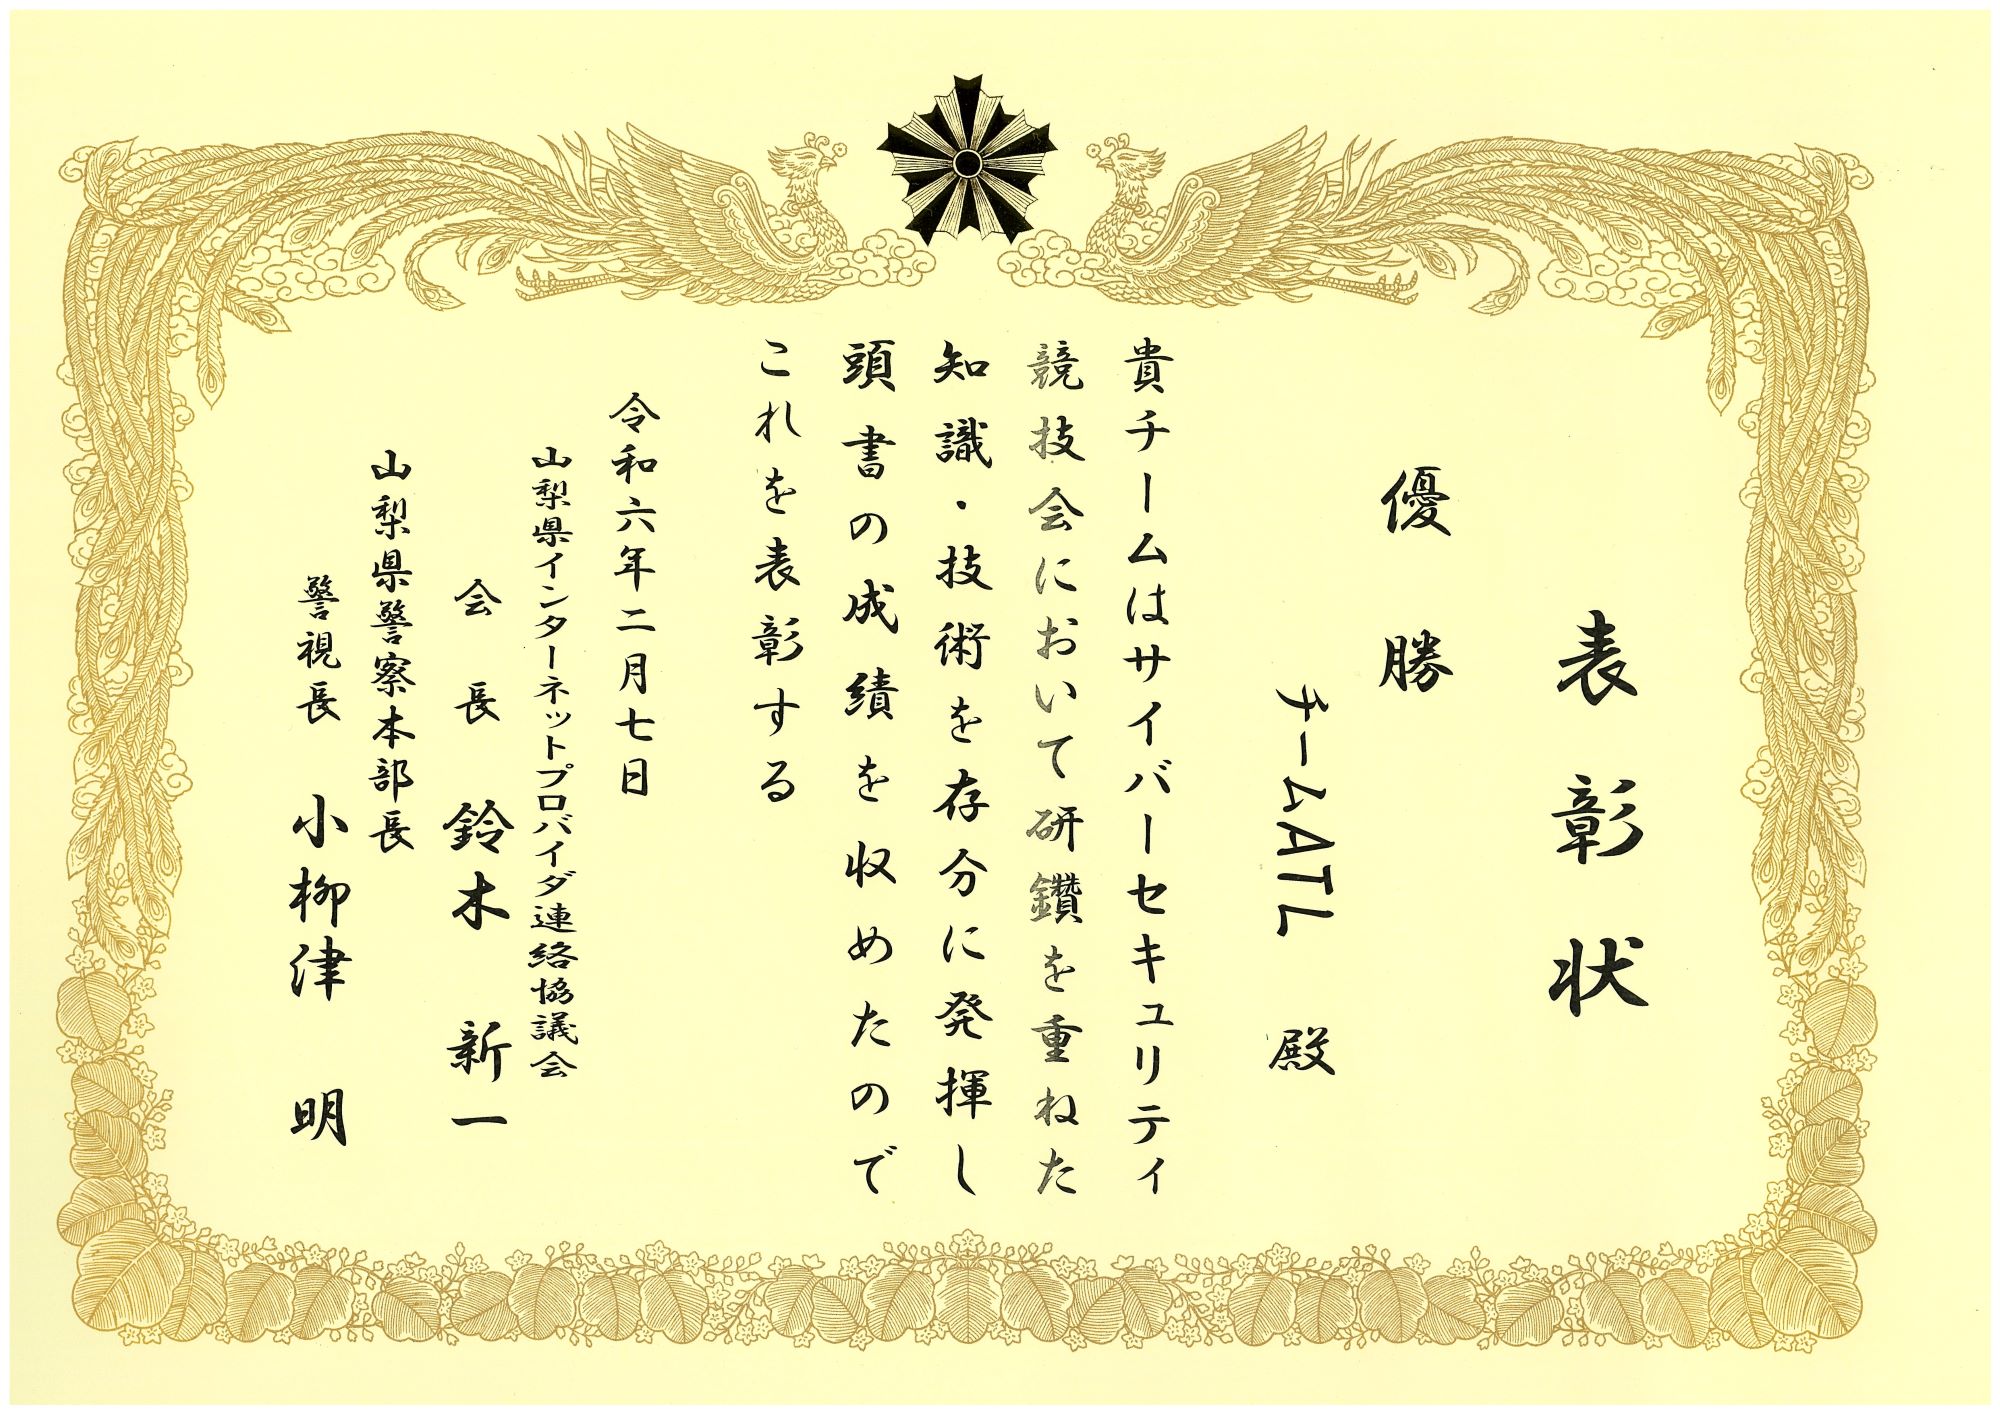 表彰状
優勝
チームATL 殿
貴チームはサイバーセキュリティ
競技会において研鑽を重ねた
知識・技術を存分に発揮し
頭書の成績を収めたので
これを表彰する
令和六年二月七日
山梨県インターネットプロバイダ連絡協議会
会長 鈴木 新一
山梨県警察本部長
警視長 小柳津 明